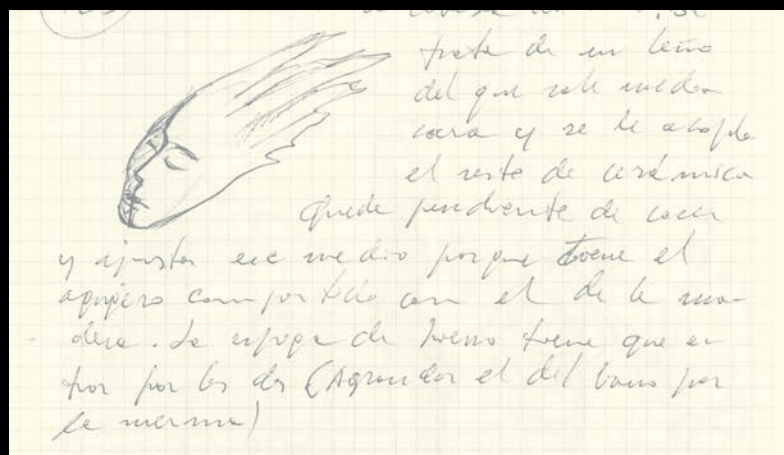 trata de un leño
del que sale media
cara y se le acopla
el resto de cerámica
Queda pendiente de cocer
y ajustar ese medio porque tiene el
agujero compartido con el de la ma-
dera. La espiga de hierro tiene que en
trar por los dos (Agrandar el del barro por
la merma)